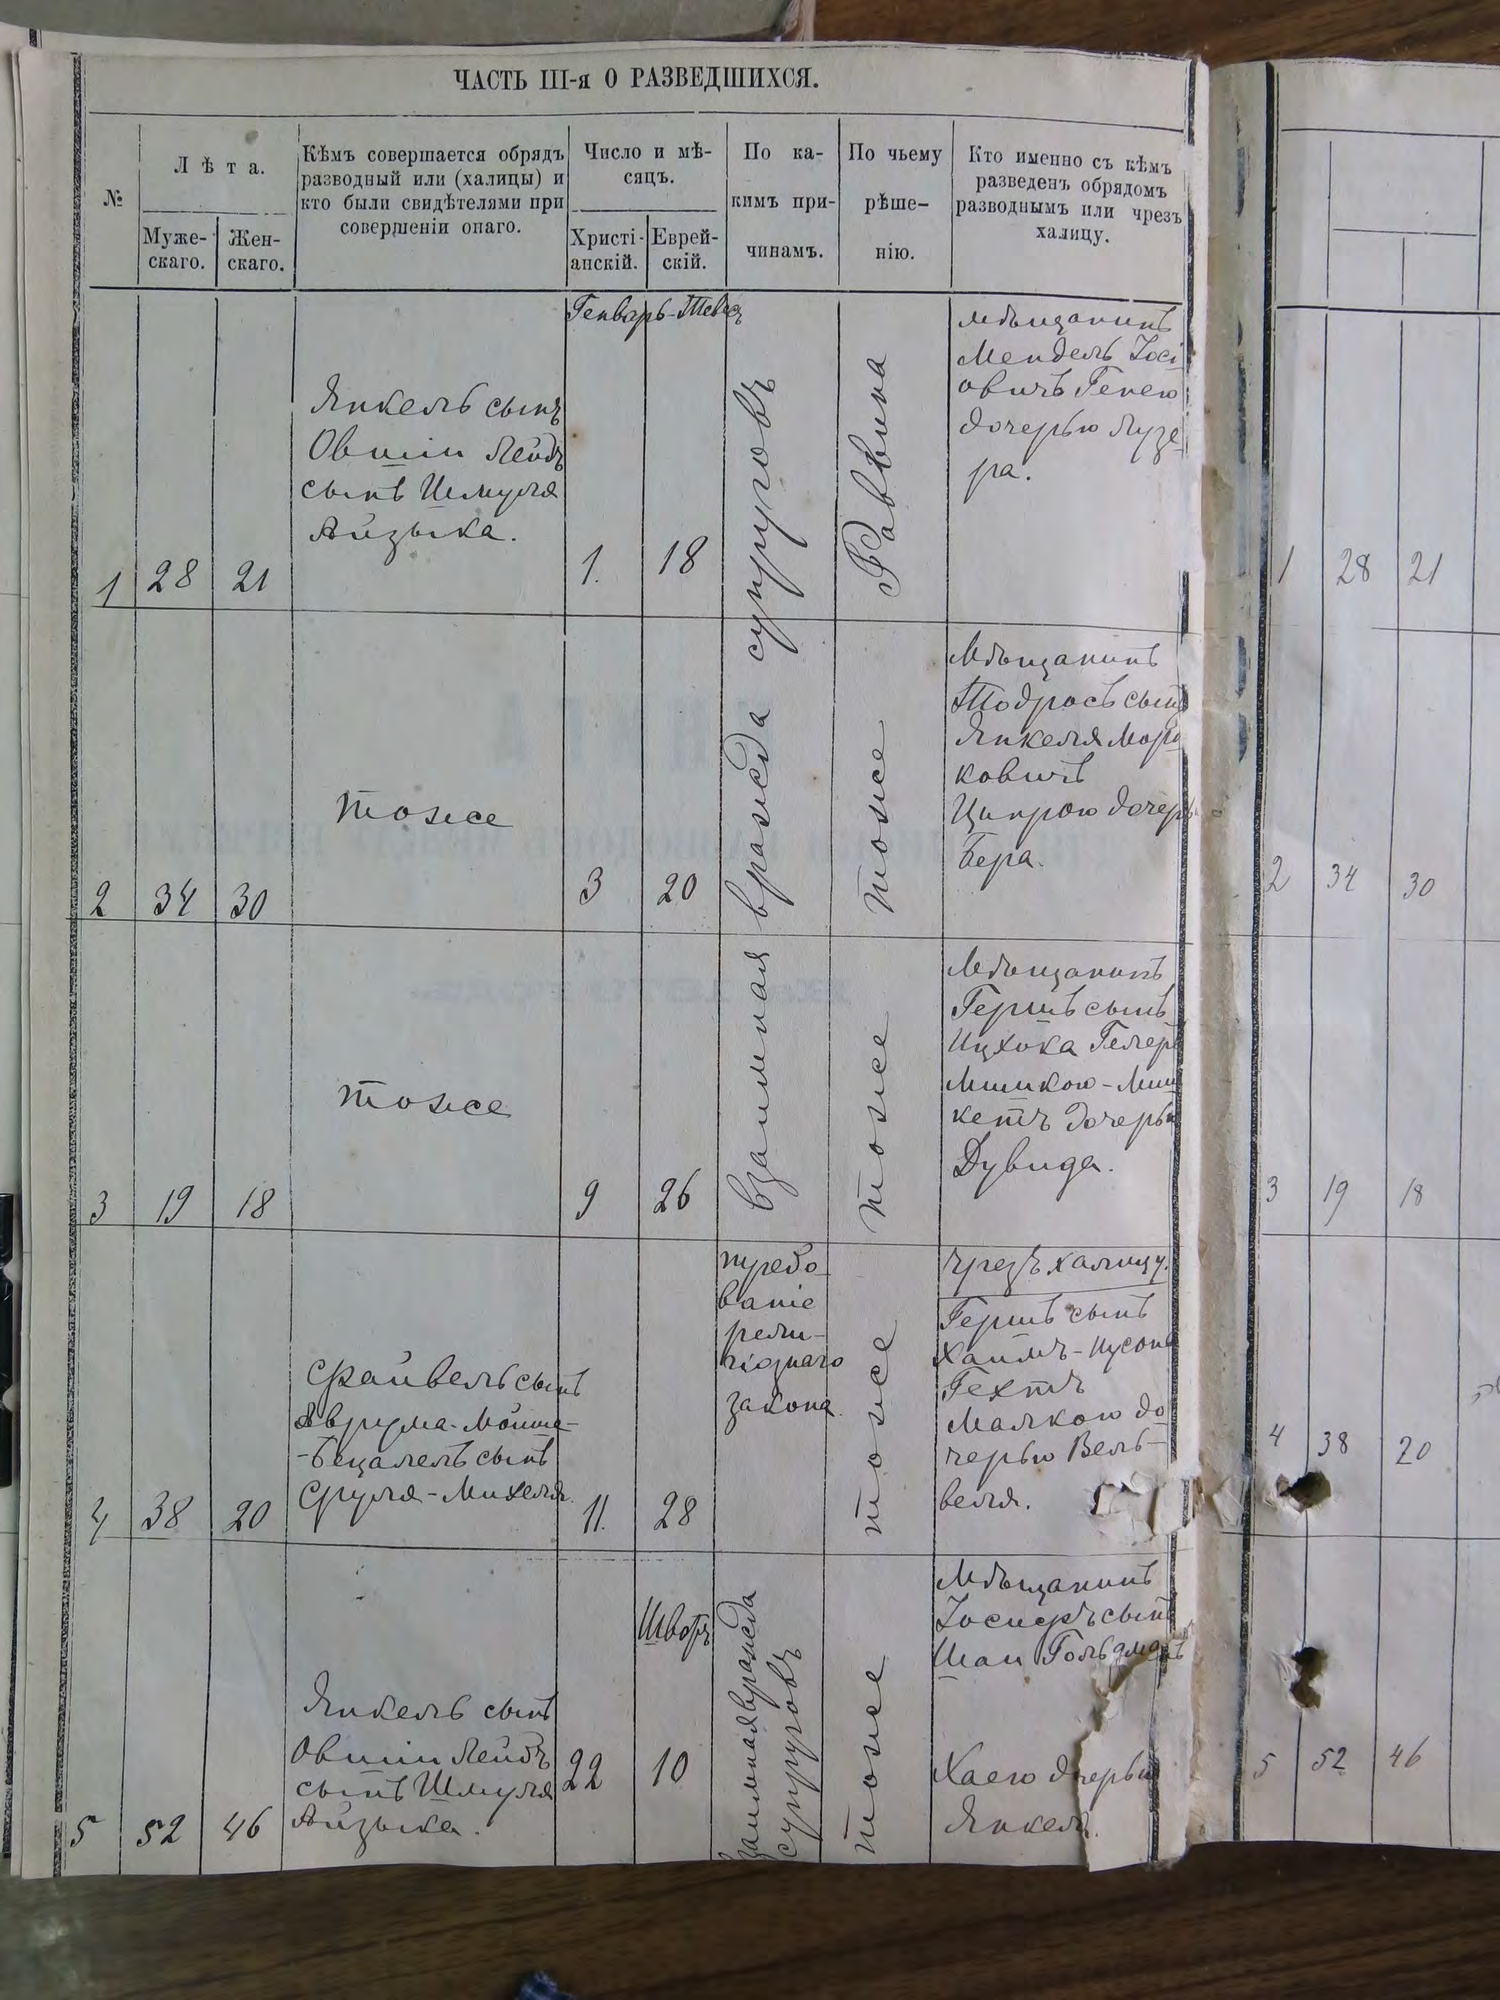 ЧАСТЬ III-я О РАЗВЕДШИХСЯ.
№
Лѣта.
Муже-
скаго.
Жен-
скаго.
Кѣмъ совершается обрядъ
разводный или (халицы) и
кто были свидѣтелями при
совершеніи онаго.
Число и мѣ-
сяцъ.
Христі-
анскій.
Еврей-
скій.
По ка-
кимъ при-
чинамъ.
По чьему
рѣше-
нію.
Кто именно съ кѣмъ
разведенъ обрядомъ
разводнымъ или чрезъ
халицу.
Генварь-Тевес
1
28
21
Янкель сынъ
Овшіи Лейбъ
сынъ Шмуля
Айзыка.
1.
18
взаимная вражда супруговъ
Раввина
мѣщанинъ
Мендель Іосі
овичъ Генею
дочерью Лузе-
ра.
2
34
30
тоже
3
20
тоже
Мѣщанинъ
Тодросъ сынъ
Янкеля Марго
ковичъ
Ципрою дочерь
Бера.
3
19
18
тоже
9
26
тоже
Мѣщанинъ
Гершъ сынъ
Ицхока
Минкою-Мин
кетъ дочерью
Дувида.
4
38
20
Файвель сынъ
Аврума-Мойша-
-Бецалель сынъ
Сруля-Михеля.
11.
28
требо-
ваніе
рели-
гіознаго
закона.
тоже
чрезъ халицу.
Гершъ сынъ
Хаимъ-Нусона
Гехтъ
Малкою до
черью Вель-
веля.
5
52
46
Янкель сынъ
Овшіи Лейбъ
сынъ Шмуля
Айзыка.
22
Шватъ
10
взаимная вражда
супруговъ
тоже
Мѣщанинъ
Іосифъ сынъ
Шаи
Хаею дочерью
Янкеля.
1
28
21
2
34
30
3
19
18
4
38
20
5
52
46